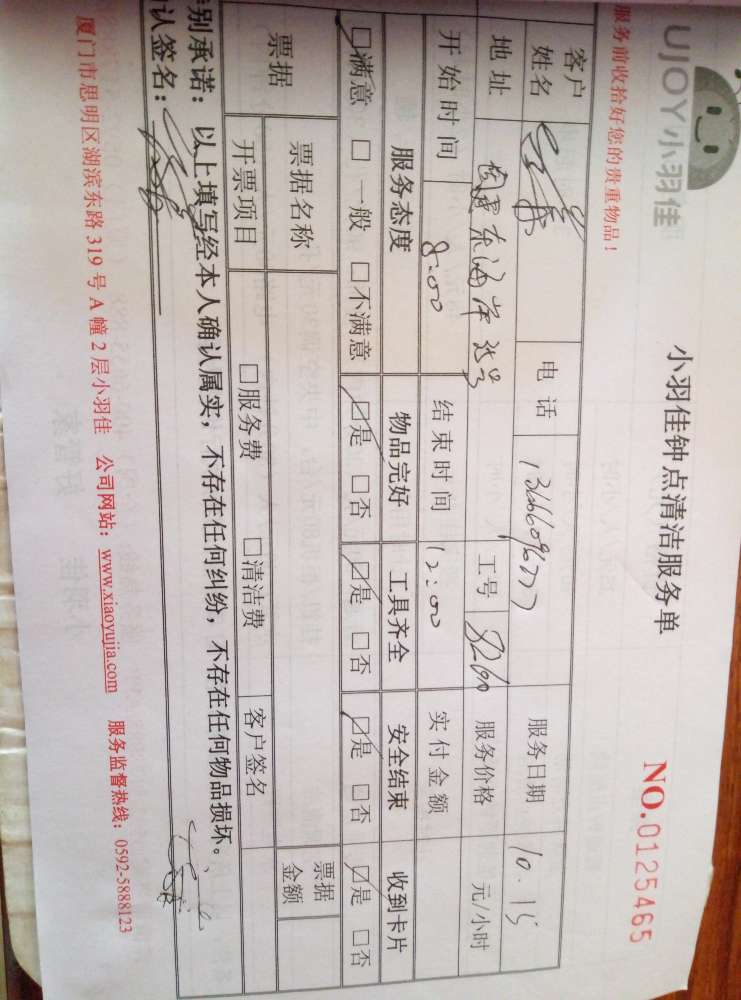 UJOY小羽佳
小羽佳钟点清洁服务单
NO.0125465
服务前收拾好您的贵重物品!
客户姓名 电话 13666096777 服务日期 10.15
地址 东海岸 工号 82610 服务价格 元/小时
开始时间 8:00 结束时间 12:00 实付金额
服务态度 物品完好 工具齐全 安全结束 收到卡片
☑满意 □一般 □不满意 ☑是 □否 ☑是 □否 ☑是 □否 ☑是 □否
票据 票据名称 票据金额
开票项目 □服务费 □清洁费 客户签名
别承诺：以上填写经本人确认属实，不存在任何纠纷，不存在任何物品损坏。
认签名：
厦门市思明区湖滨东路 319 号 A 幢 2 层小羽佳 公司网站：www.xiaoyujia.com 服务监督热线：0592-5888123